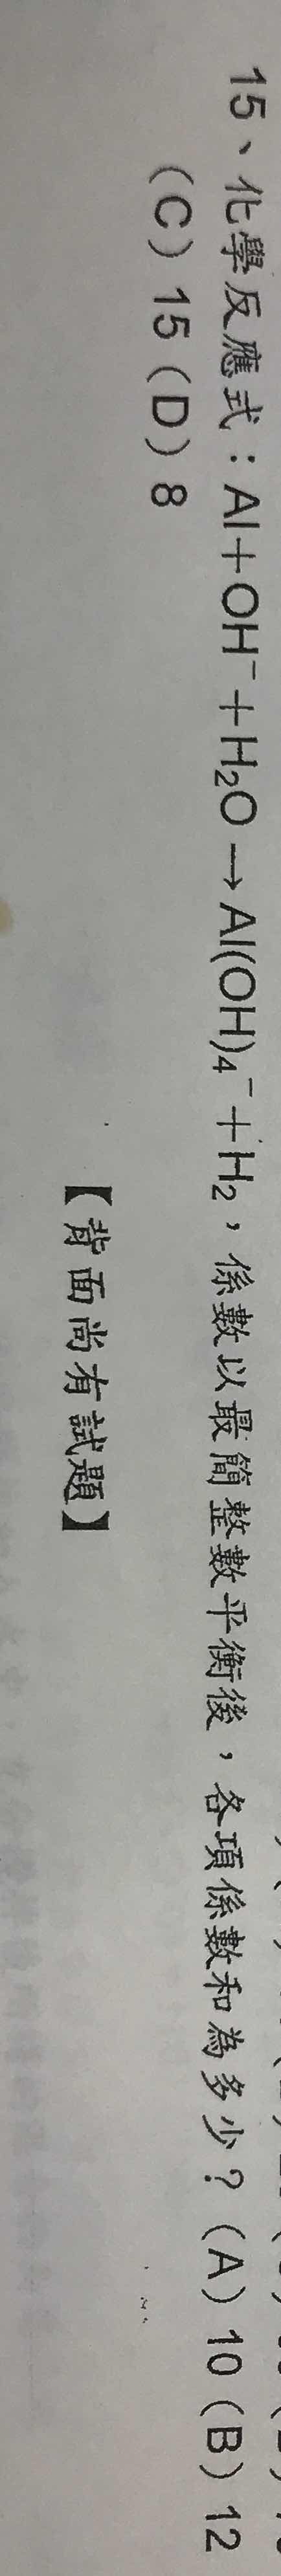 15、化學反應式：Al＋OH⁻＋H₂O→Al(OH)₄⁻＋H₂，係數以最簡整數平衡後，各項係數和為多少？（A）10（B）12
（C）15（D）8
【背面尚有試題】